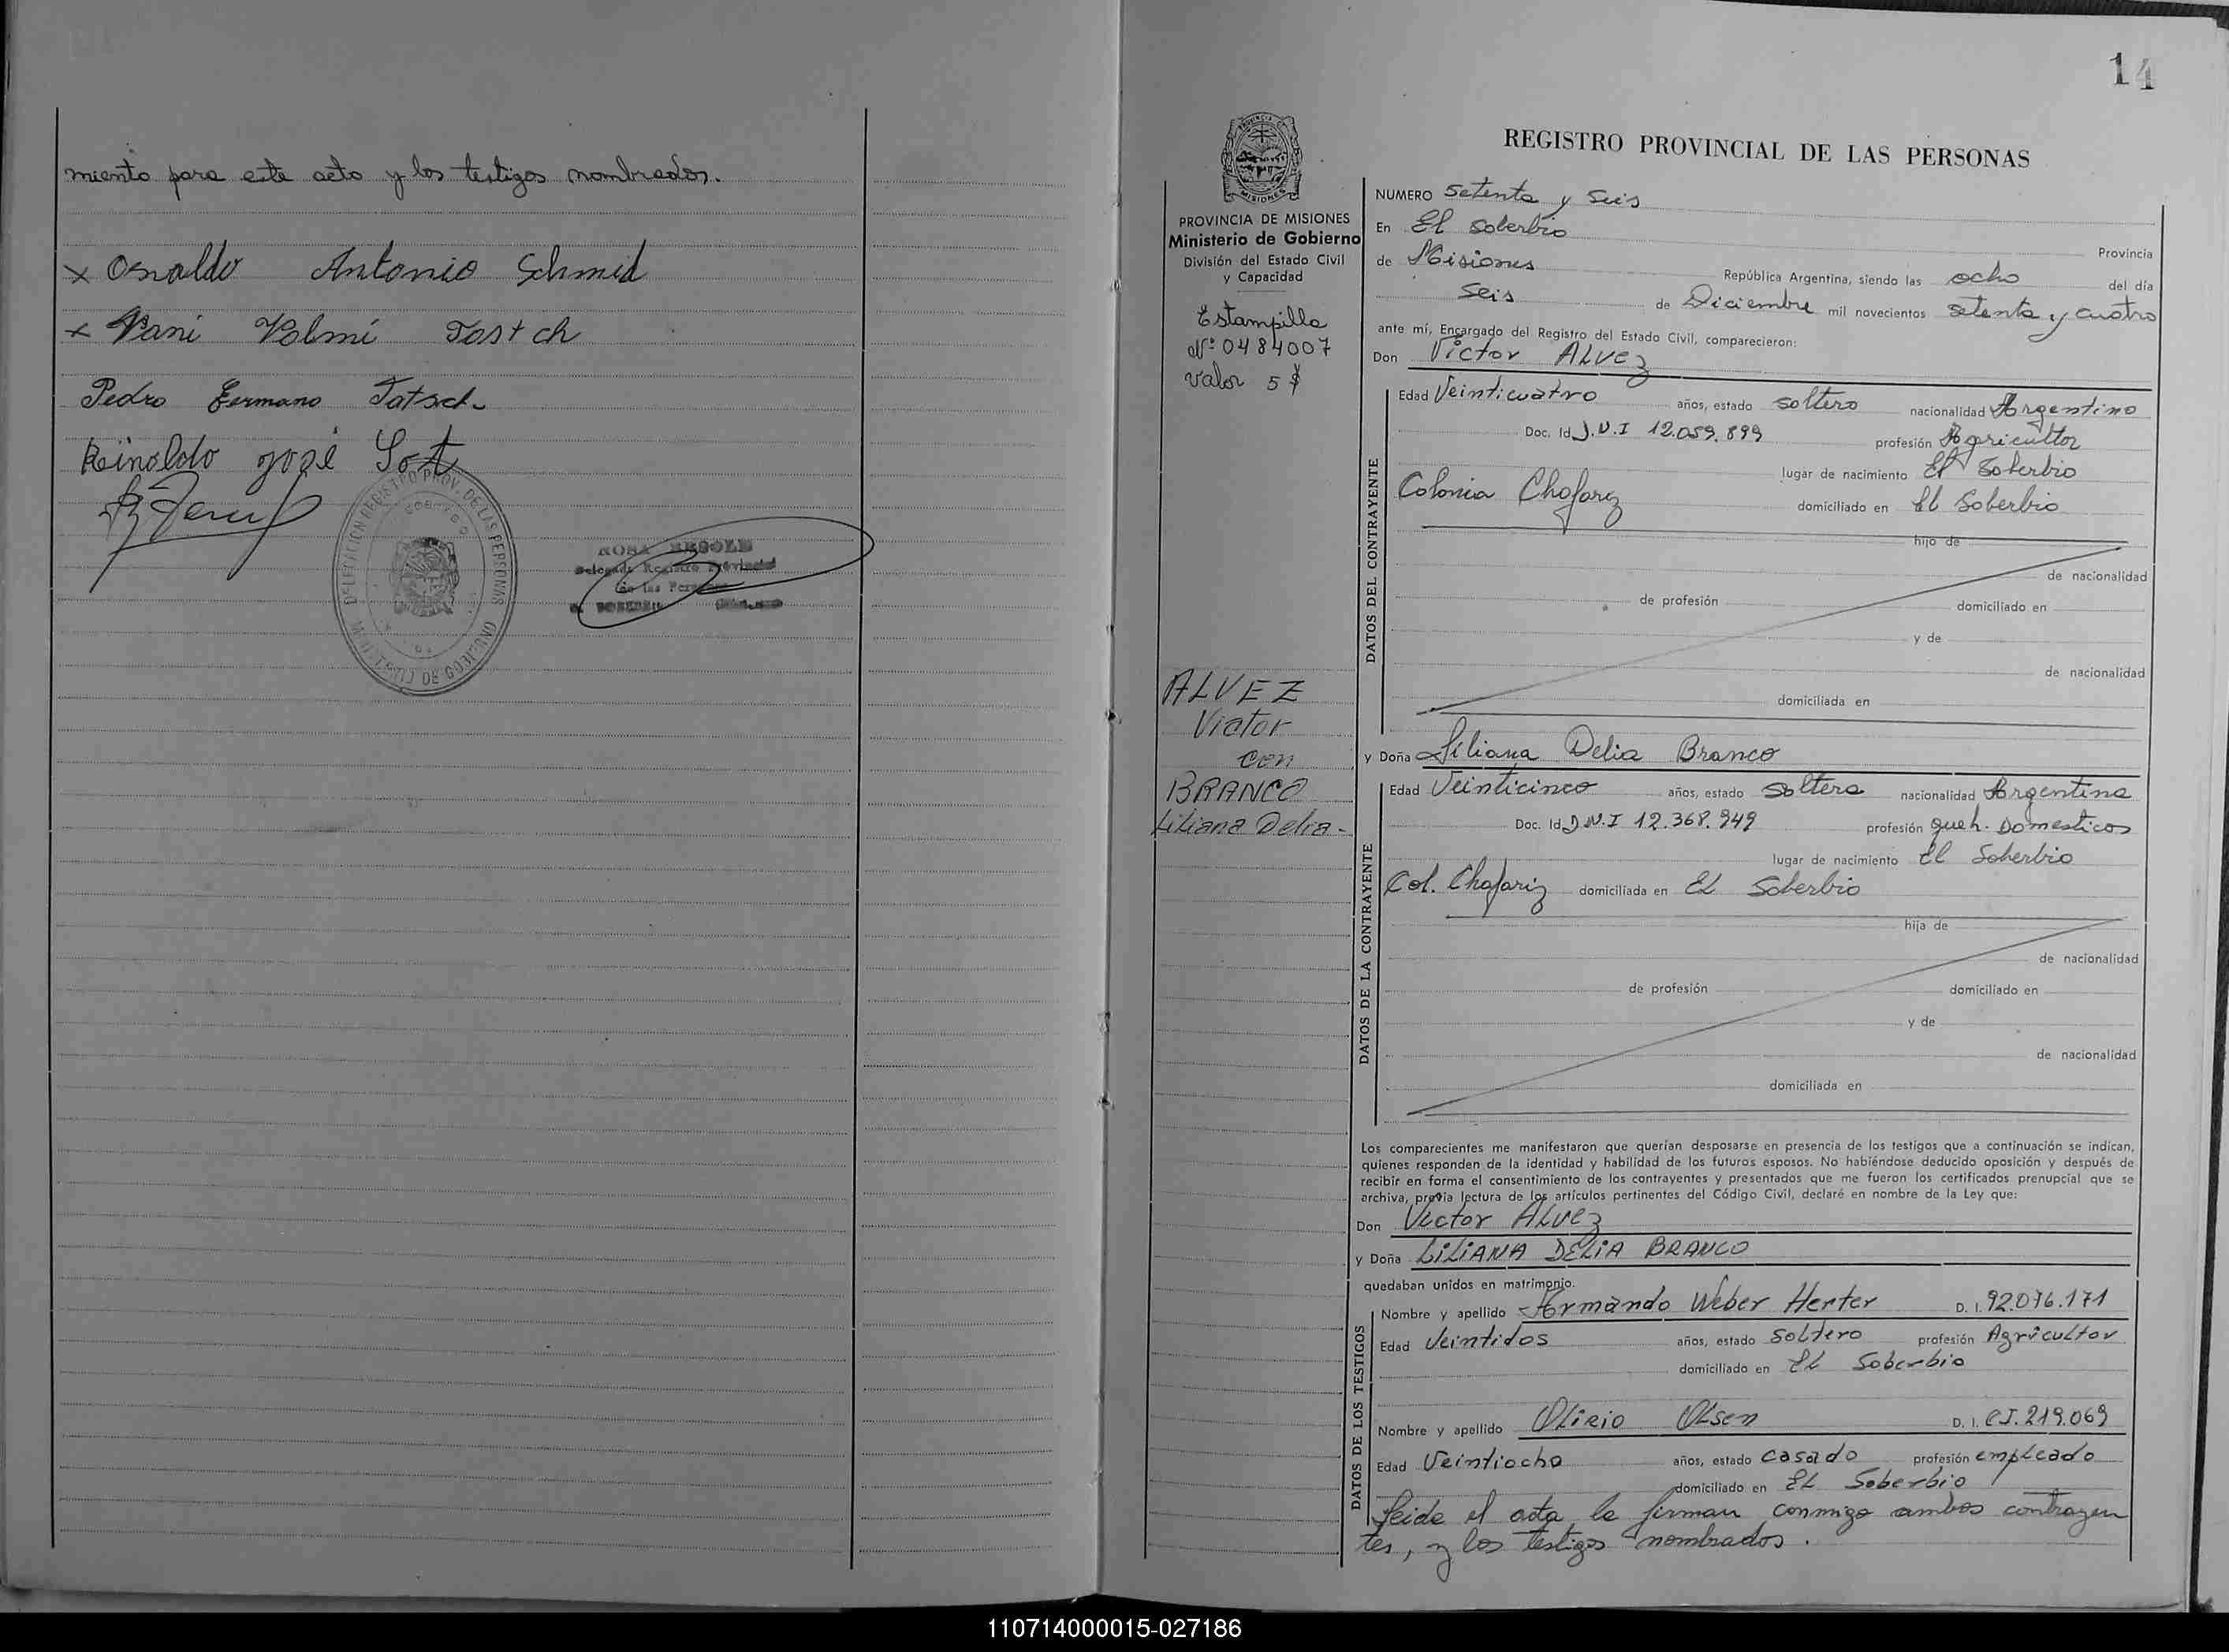 miento para este acto y los testigos nombrados.
x Osvaldo Antonio Schmid
x Vani Valmi Tostch
Pedro Germano Tatsch
Reinoldo José
DE LAS PERSONAS
ROSA
Delegada Registro Provincial
de las Personas
14
PROVINCIA DE MISIONES
Ministerio de Gobierno
División del Estado Civil
y Capacidad
Estampilla
Nº 0484007
Valor 5 $
ALVEZ
Victor
con
BRANCO
Liliana Delia-
REGISTRO PROVINCIAL DE LAS PERSONAS
NUMERO Setenta y Seis
En El Soberbio
Provincia
de Misiones República Argentina, siendo las ocho del día
Seis de Diciembre mil novecientos setenta y cuatro
ante mí, Encargado del Registro del Estado Civil, comparecieron:
Don Victor ALVEZ
DATOS DEL CONTRAYENTE
Edad Veinticuatro años, estado soltero nacionalidad Argentino
Doc. Id D.N.I 12.059.899 profesión Agricultor
lugar de nacimiento El Soberbio
Colonia Chafariz domiciliado en El Soberbio
hijo de
de nacionalidad
de profesión domiciliado en
y de
de nacionalidad
domiciliada en
y Doña Liliana Delia Branco
DATOS DE LA CONTRAYENTE
Edad Veinticinco años, estado soltera nacionalidad Argentina
Doc. Id D.N.I 12.368.949 profesión queh. Domesticos
lugar de nacimiento El Soberbio
Col. Chafariz domiciliada en El Soberbio
hija de
de nacionalidad
de profesión domiciliado en
y de
de nacionalidad
domiciliada en
Los comparecientes me manifestaron que querían desposarse en presencia de los testigos que a continuación se indican,
quienes responden de la identidad y habilidad de los futuros esposos. No habiéndose deducido oposición y después de
recibir en forma el consentimiento de los contrayentes y presentados que me fueron los certificados prenupcial que se
archiva, previa lectura de los artículos pertinentes del Código Civil, declaré en nombre de la Ley que:
Don Victor ALVEZ
y Doña LILIANA DELIA BRANCO
quedaban unidos en matrimonio.
DATOS DE LOS TESTIGOS
Nombre y apellido Armando Weber Herter D. I. 92.076.171
Edad Veintidos años, estado Soltero profesión Agricultor
domiciliado en El Soberbio
Nombre y apellido Olirio Olsen D. I. C.I. 219.069
Edad Veintiocho años, estado casado profesión empleado
domiciliado en El Soberbio
Leida el acta la firman conmigo ambos contrayen
tes, y los testigos nombrados.
110714000015-027186